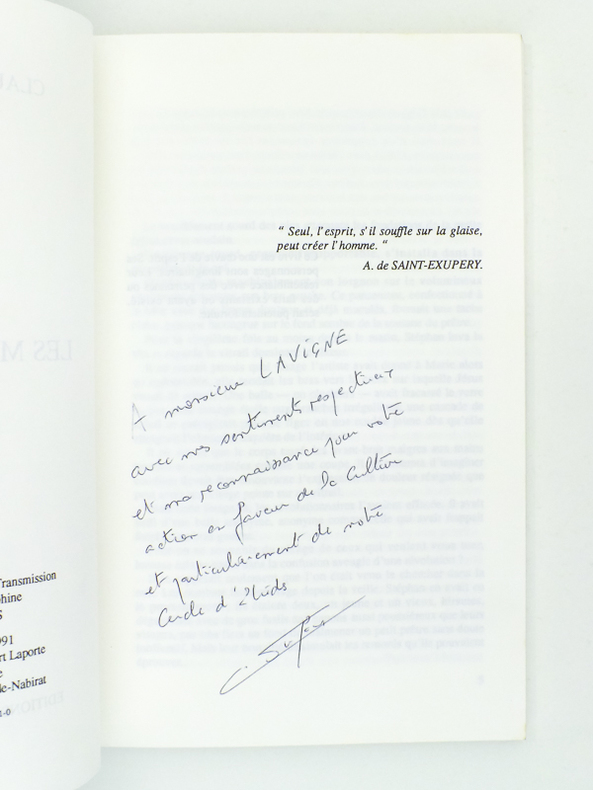 Transmission
phine
S
991
rt Laporte
e
de-Nabirat
1-0
“ Seul, l'esprit, s'il souffle sur la glaise,
peut créer l'homme. “
A. de SAINT-EXUPERY.
A monsieur LAVIGNE
avec mes sentiments respectueux
et ma reconnaissance pour votre
action en faveur de la Culture
et particulièrement de notre
Cercle d'études
C.